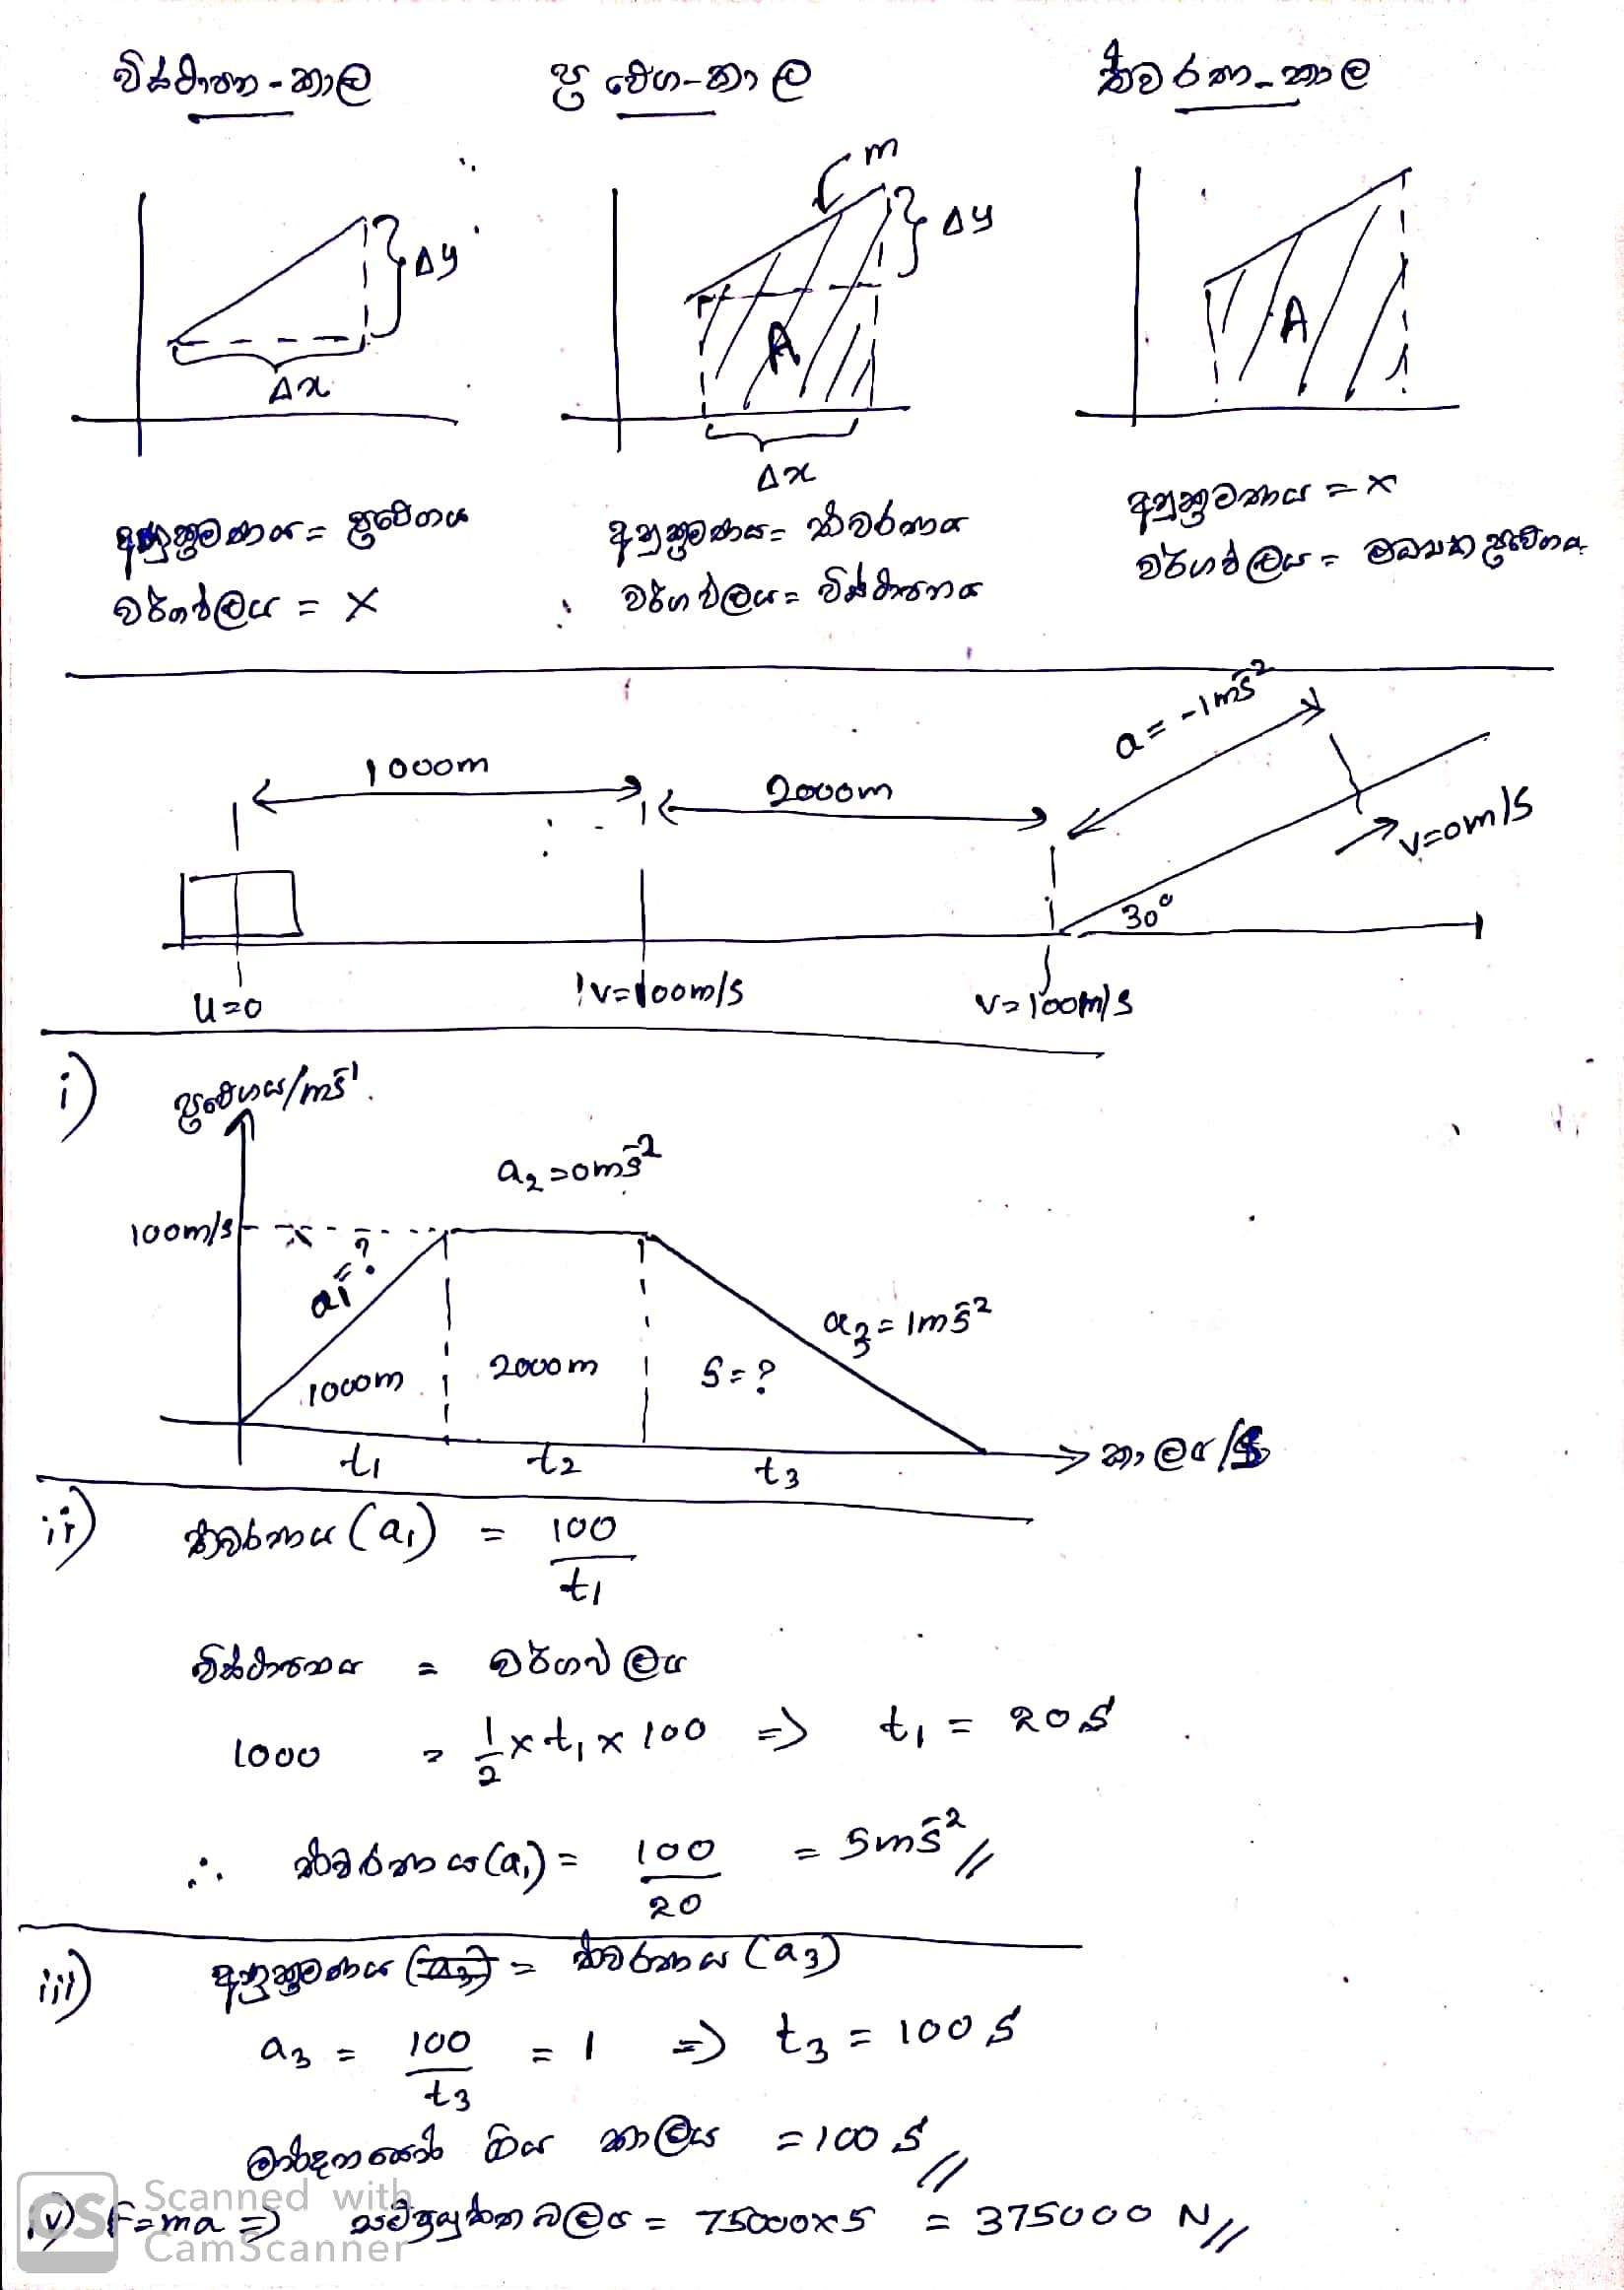 විස්ථාපන - කාල
ප්‍රවේග - කාල
ත්වරණ - කාල
m
Δy
Δy
A
A
Δx
Δx
අනුක්‍රමණය = ප්‍රවේගය
වර්ගඵලය = ×
අනුක්‍රමණය = ත්වරණය
වර්ගඵලය = විස්ථාපනය
අනුක්‍රමණය = ×
වර්ගඵලය = මධ්‍යක ප්‍රවේගය
a = -1ms⁻²
1000m
2000m
v=0m/s
30°
u=0
v=100m/s
v=100m/s
i)
ප්‍රවේගය/ms⁻¹.
a₂=0ms⁻²
100m/s
a₁=?
a₃=1ms⁻²
1000m
2000m
S=?
t₁
t₂
t₃
කාලය/s
ii)
ත්වරණය (a₁) = 100/t₁
විස්ථාපනය = වර්ගඵලය
1000 = 1/2 × t₁ × 100 => t₁ = 20s
∴ ත්වරණය (a₁) = 100/20 = 5ms⁻² //
iii)
අනුක්‍රමණය = ත්වරණය (a₃)
a₃ = 100/t₃ = 1 => t₃ = 100s
මන්දනයෙන් ගිය කාලය = 100s //
iv) F=ma => සම්ප්‍රයුක්ත බලය = 75000×5 = 375000 N //
CS
Scanned with
CamScanner